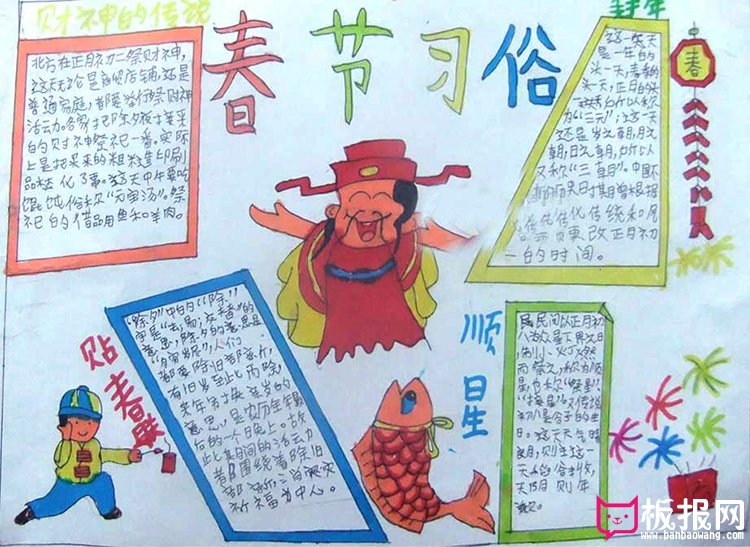 财神的传说
春节习俗
北方在正月初二祭财神,
这天无论是商贸店铺,还是
普通家庭,都要举行祭财神
活动。各家把除夕夜接来
的财神祭祀一番。实际
上是把买来的粗糙印刷
品焚化了事。这天中午要吃
馄饨俗称"元宝汤"。祭
祀的供品用鱼和羊肉。
这一天
是一年的
头一天,春季的
头一天,正月的头
一天,所以称
为"三元",这一天
还是岁之朝,月之
朝,日之朝,所以
又称"三朝"。中国
改正月初
一的时间。
春
贴春联
"除夕"中的"除"
字是"去;易;交替"的
意思,除夕的意思是
"月穷岁尽",人们
都要除旧部新,
有旧岁至此而除,
来年另换新岁的
意思,是农历全年最
后的一个晚上。故
此期间的活动
都围绕着除旧
部新,消灾
祈福为中心。
顺星
民间以正月初
八为众星下界之日,
制小灯燃
而祭之,称为顺
星,也称"祭星"、
"接星"。又传说
初八是谷子的生
日。这天天气晴
朗,则主这一
年的
天阴则年
歉。
板报网
www.banbaowang.com